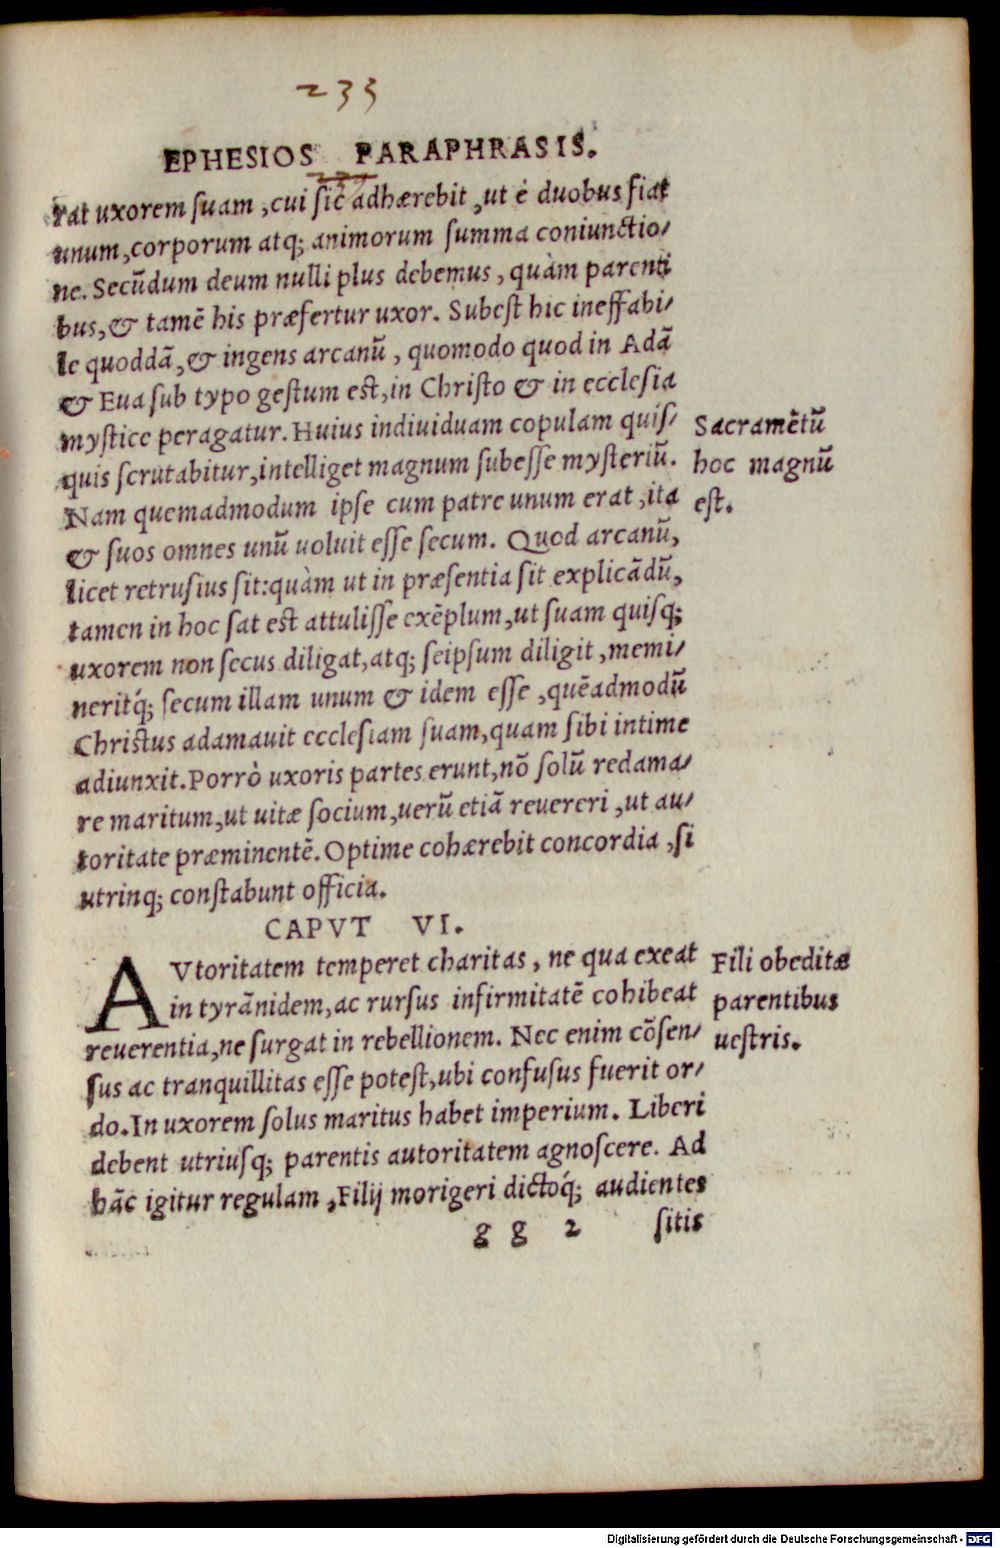 233
EPHESIOS PARAPHRASIS.
rat uxorem ſuam, cui ſic adhærebit, ut è duobus fiat
unum, corporum atq; animorum ſumma coniunctio/
ne. Secũdum deum nulli plus debemus, quàm parenti
bus, & tamẽ his præfertur uxor. Subeſt hic ineffabi/
le quoddã, & ingens arcanũ, quomodo quod in Adã
& Eua ſub typo geſtum eſt, in Chriſto & in eccleſia
myſtice peragatur. Huius indiuiduam copulam quiſ/
quis ſcrutabitur, intelliget magnum ſubeſſe myſteriũ.
Nam quemadmodum ipſe cum patre unum erat, ita
& ſuos omnes unũ uoluit eſſe ſecum. Quod arcanũ,
licet retruſius ſit: quàm ut in præſentia ſit explicãdũ,
tamen in hoc ſat eſt attuliſſe exẽplum, ut ſuam quiſq;
uxorem non ſecus diligat, atq; ſeipſum diligit, memi/
neritq́; ſecum illam unum & idem eſſe, quẽadmodũ
Chriſtus adamauit eccleſiam ſuam, quam ſibi intime
adiunxit. Porrò uxoris partes erunt, nõ ſolũ redama/
re maritum, ut uitæ ſocium, uerũ etiã reuereri, ut au/
toritate præminentẽ. Optime cohærebit concordia, ſi
utrinq; conſtabunt officia.
Sacramẽtũ
hoc magnũ
eſt.
CAPVT VI.
AVtoritatem temperet charitas, ne qua exeat
in tyrãnidem, ac rurſus infirmitatẽ cohibeat
reuerentia, ne ſurgat in rebellionem. Nec enim cõſen/
ſus ac tranquillitas eſſe poteſt, ubi confuſus fuerit or/
do. In uxorem ſolus maritus habet imperium. Liberi
debent utriuſq; parentis autoritatem agnoſcere. Ad
hãc igitur regulam, Filij morigeri dictoq́; audientes
Fili obeditæ
parentibus
ueſtris.
g g 2 ſitis
Digitalisierung gefördert durch die Deutsche Forschungsgemeinschaft - DFG